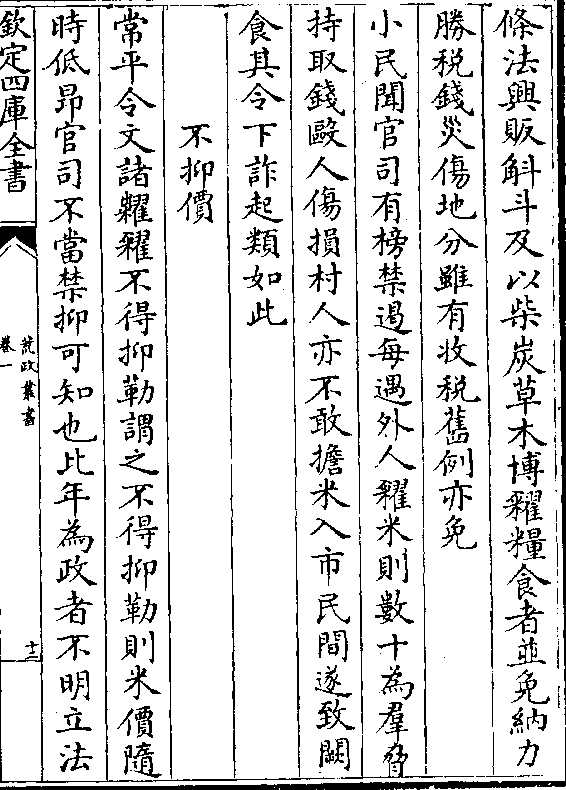 條法興販斛斗及以柴炭草木博糴糧食者並免納力
勝税錢災傷地分雖有收税舊例亦免
小民聞官司有榜禁遏每遇外人糴米則數十為羣脅
持取錢毆人傷損村人亦不敢擔米入市民間遂致闕
食其令下詐起類如此
不抑價
常平令文諸糶糴不得抑勒謂之不得抑勒則米價隨
時低昂官司不當禁抑可知也比年為政者不明立法
欽定四庫全書
荒政叢書
卷一
十二